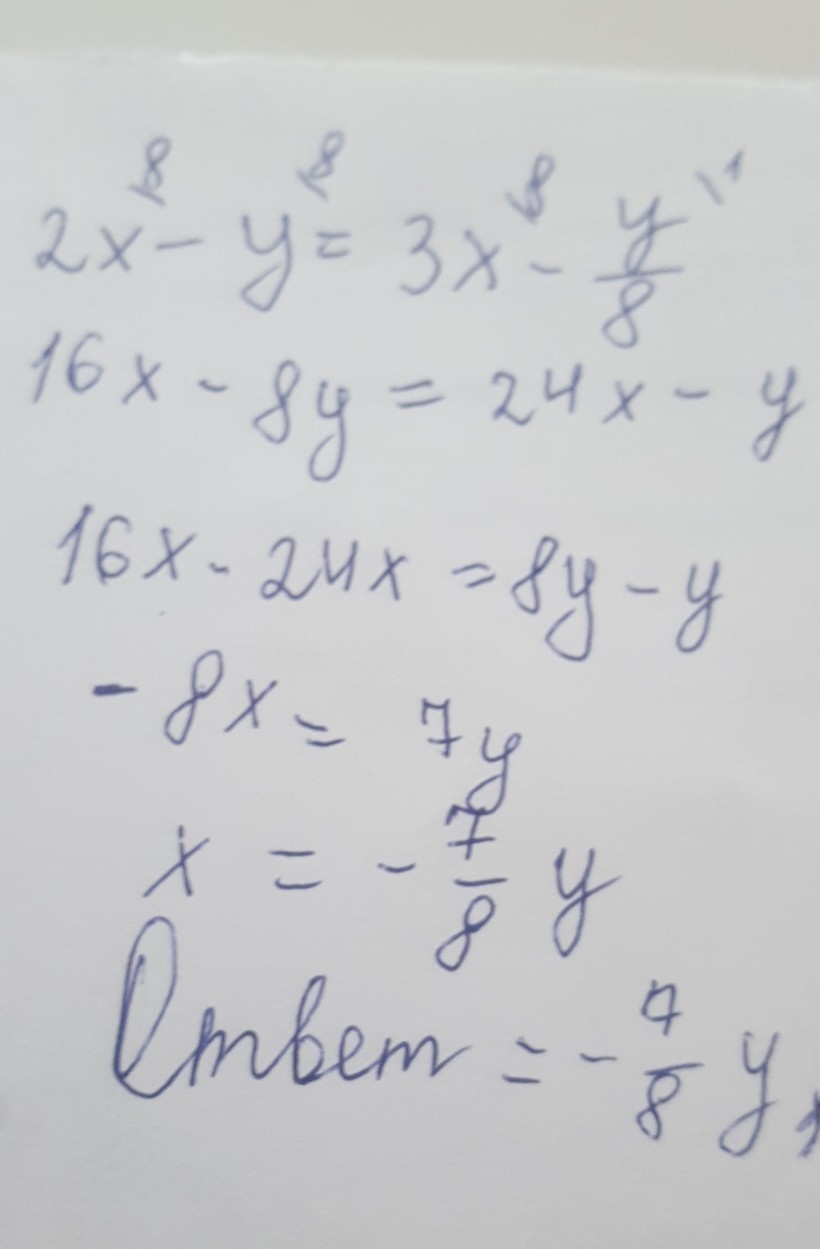 2x⁸ - y⁸ = 3x⁸ - y/8 \¹
16x - 8y = 24x - y
16x - 24x = 8y - y
- 8x = 7y
x = - 7/8 y
Ответ = - 7/8 y,